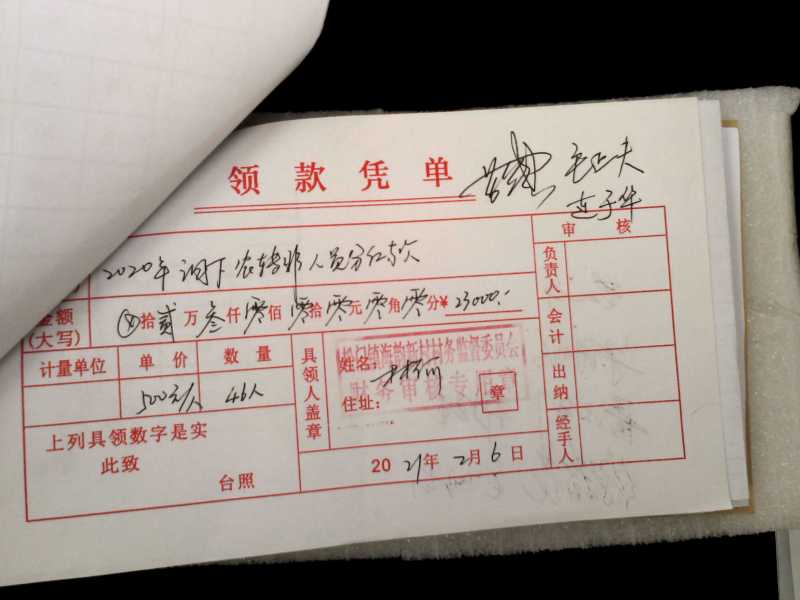 领款凭单
2020年 农转非人员分红款
金额
(大写) ⊗拾贰万叁仟零佰零拾零元零角零分¥23000.-
计量单位 单价 数量
500元/人 46人
上列具领数字是实
此致
台照
具领人盖章
姓名:
住址:
章
海韵新村村务监督委员会
财务审核专用章
2021年2月6日
审核
负责人
会计
出纳
经手人